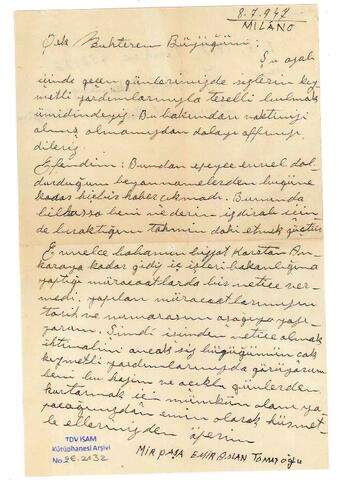 8.7.947
MİLÂNO
Pek Muhterem Büyüğüm:
Şu acıklı
içinde geçen günlerimizde sizlerin kıy-
metli yardımlarınızla teselli bulmak
ümidindeyiz. Bu bakımdan vaktinizi
almış olmamızdan dolayı affınızı
dileriz.
Efendim: Bundan epeyce evvel dol-
durduğum beyannamelerden bugüne
kadar hiçbir haber çıkmadı. Bununda
bilhassa beni ne derin ızdırab için-
de bıraktığını tahmin daki etmek güçtür
Evvelce babamın bizzat Karstan An-
karaya kadar gidip iç işleri bakanlığına
yaptığı müracaatlarda bir netice ver-
medi. yapılan müracaatlarımızın
tarih ve numarasını aşağıya yazı-
yorum. Şimdi işinden netice almak
ihtimalini ancak siz büyüğümün çok
kıymetli yardımlarınızda görüyorum
beni bu hazin ve acıklı günlerden
kurtarmak için mümkün olanı ya-
pacağınızdan emin olarak hürmet-
le ellerinizden öperim
MİRPAŞA EMİRASLAN TOMAYOĞLU
TDV İSAM
Kütüphanesi Arşivi
No 2E.2132